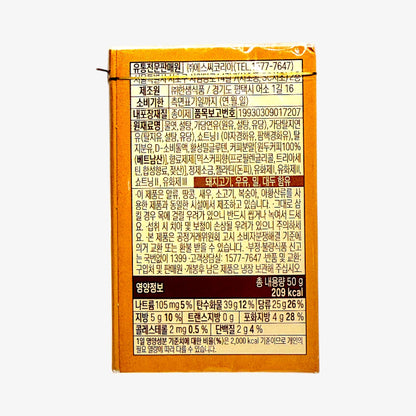 유통전문판매원 ㈜에스씨코리아(TEL.1577-7647)
제조원 ㈜한생식품 / 경기도 평택시 어소 1길 16
소비기한 측면표기일까지 (연.월.일)
내포장재질 종이제 품목보고번호 19930309017207
원재료명 물엿, 설탕, 가당연유(원유, 설탕, 유당), 가당탈지연
유(탈지유, 설탕, 유당), 쇼트닝Ⅰ(야자경화유, 팜경화유), 탈
지분유, D-소비톨액, 황성덜글루텐, 커피분말(원두커피100%
(베트남산)), 향료제제[믹스커피향(프로필렌글리콜, 트리아세
틴, 합성향료, 왓산)], 정제소금, 젤라틴(돈피), 유화제Ⅰ, 유화제Ⅱ,
쇼트닝Ⅱ, 유화제Ⅲ 돼지고기, 우유, 밀, 대두 함유
·이 제품은 알류, 땅콩, 새우, 소고기, 복숭아, 아황산류를 사
용한 제품과 동일한 시설에서 제조하고 있습니다. ·그대로 삼
킬 경우 목에 걸릴 우려가 있으니 반드시 씹거나 녹여서 드세
요. 섭취 시 치아 및 보철이 손상될 우려가 있으니 주의하세
요. ·본 제품은 공정거래위원회 고시 소비자분쟁해결 기준에
의거 교환 또는 환불 받을 수 있습니다. ·부정·불량식품 신고
는 국번없이 1399 ·고객상담실: 1577-7647 ·반품 및 교환:
구입처 및 판매원 ·개봉후 남은 제품은 냉장 보관해 주십시오.
영양정보 총 내용량 50 g
209 kcal
나트륨 105 mg 5% 탄수화물 39 g 12% 당류 25 g 26%
지방 5 g 10% 트랜스지방 0 g 포화지방 4 g 28%
콜레스테롤 2 mg 0.5% 단백질 2 g 4%
1일 영양성분 기준치에 대한 비율(%)은 2,000 kcal 기준이므로 개인의
필요 열량에 따라 다를 수 있습니다.